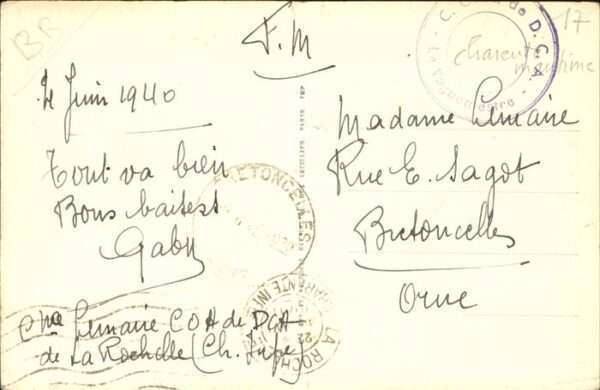 BR
F.M
17
Charente
maritime
C. de D.C.A
Le Vaguemestre
4 Juin 1940
Tout va bien
Bons baisers
Gaby
Madame Lemaire
Rue E. Sagot
Bretoncelles
Orne
BRETONCELLES
LA ROCH
CHARENTE INF
Lemaire COA de DCA
de La Rochelle (Ch. Infe)